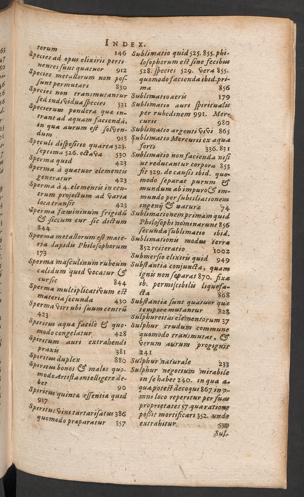 INDEX.
torum 146
Species ad opus elixiris pertinentes sunt quatuor 912
Species metallorum non possunt permutari 830
Species non transmutantur sed individua speciei 531
Specierum pondera quæ intrant ad aquam faciendā, in qua aurum est solvendum 913
Speculi dispositio quarta 525. septima 526. octava 530
Sperma quid 423
Sperma à quatuor elementis generatur 423
Sperma à 4. elementis in centrum projectum ad varia loca transit 425
Sperma fœmininum frigidū & siccum cur sic dictum 844
Sperma metallorum est materia lapidis Philosophorum 173
Sperma masculinum rubeum calidum quid vocatur & cur sic 844
Sperma multiplicativum est materia secunda 430
Sperma viri ubi suum centrū 423
Spiritus aqua fætidi & quomodo congelatur 428
Spiritum auri extrahendi praxis 381
Spiritus duplex 880
Spiritus bonos & malos quomodo Artista intelligere debet 90
Spiritus quinta essentia quid 917
Spiritus vini tartarisatus 386
quomodo præparatur 857
Sublimatio quid 525. 855. philosophorum est sino fecibus
528. species 529. vera 855.
quomodo facienda ibid. prima 856
Sublimatio aeris 179
Sublimatio auri spiritualis per rubedinem 991. Mercurii 980
Sublimatio argenti vivi 865
Sublimatio Mercurii ex aqua forti 336. 831
Sublimatio non facienda nisi ut reducantur corpora 833
fit 529. de causis ibid. quomodo separat purum & mundum ab impuro & immundo per sublisationem
ingenij & natura 74
Sublimationem primam quid Philosophi nominarunt 856
secunda sublimatio ibid.
Sublimationis modus serra 832 reiteratio 1002
Submersio elixiris quid 949
Substantia conjuncta, quam ignis non separat 870. fixa ob. permiscibilis liquefacta 868
Substantia sunt quatuor quæ tempore mutantur 828
Sulphureitas elementorum 27
Sulphur crudum commune quomodo transmutat, & verum aurum progignit 241
Sulphur naturale 233
Sulphur negotium mirabile in se habet 240. in qua aqua potest decoqui 867 in omni loco reperitur per suas proprietates 57 qua ratione possit mortificari 352. unde extrahitur. 530
Sul-